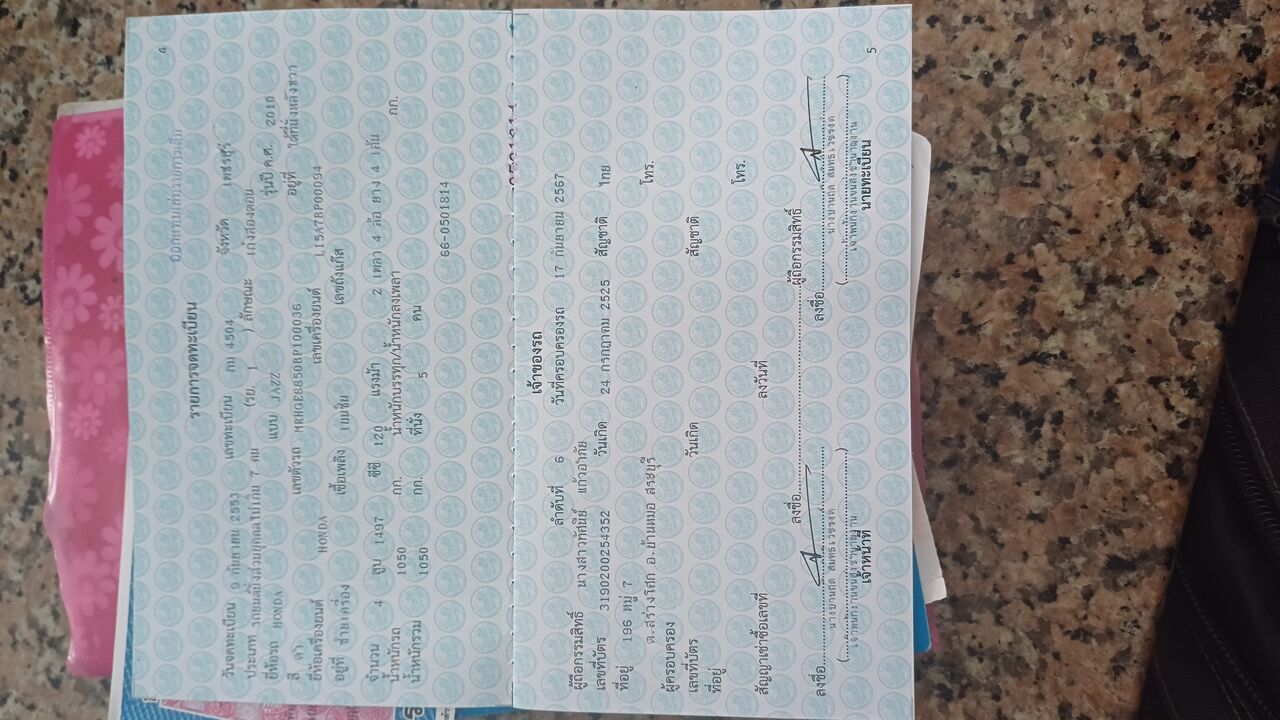 4
ออกแทนเล่มรายการเต็ม
รายการจดทะเบียน
วันจดทะเบียน 9 กันยายน 2553 เลขทะเบียน กม 4504 จังหวัด เพชรบุรี
ประเภท รถยนต์นั่งส่วนบุคคลไม่เกิน 7 คน (รย. 1 ) ลักษณะ เก๋งสองตอน
ยี่ห้อรถ HONDA แบบ JAZZ รุ่นปี ค.ศ. 2010
สี ดำ เลขตัวรถ MRHGE8850BP100036 อยู่ที่ ใต้ที่นั่งหลังขวา
ยี่ห้อเครื่องยนต์ HONDA เลขเครื่องยนต์ L15A7BP00094
อยู่ที่ ซ้ายเครื่อง เชื้อเพลิง เบนซิน เลขถังแก๊ส
จำนวน 4 สูบ 1497 ซีซี 120 แรงม้า 2 เพลา 4 ล้อ ยาง 4 เส้น
น้ำหนักรถ 1050 กก. น้ำหนักบรรทุก/น้ำหนักลงเพลา กก.
น้ำหนักรวม 1050 กก. ที่นั่ง 5 คน
66-0501814
เจ้าของรถ
ลำดับที่ 6 วันที่ครอบครองรถ 17 กันยายน 2567
ผู้ถือกรรมสิทธิ์ นางสาวทัศนีย์ แก้วอำภัย
เลขที่บัตร 3190200254352 วันเกิด 24 กรกฎาคม 2525 สัญชาติ ไทย
ที่อยู่ 196 หมู่ 7 โทร.
ต.สร่างโศก อ.บ้านหมอ สระบุรี
ผู้ครอบครอง
เลขที่บัตร วันเกิด สัญชาติ
ที่อยู่ โทร.
สัญญาเช่าซื้อเลขที่ ลงวันที่
ลงชื่อ ผู้ถือกรรมสิทธิ์
ลงชื่อ ลงชื่อ
เจ้าหน้าที่ นายทะเบียน
5